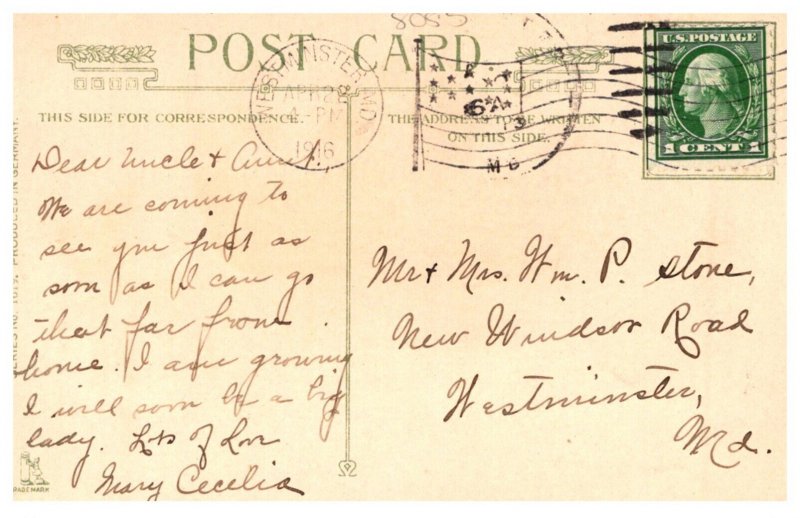 8085
POST CARD
WESTMINSTER, MD.
APR 22
4 PM
1916
6 A
MD
U.S. POSTAGE
1 CENT 1
THIS SIDE FOR CORRESPONDENCE.
THE ADDRESS TO BE WRITTEN
ON THIS SIDE.
Dear Uncle & Aunt,
We are coming to
see you just as
soon as I can go
that far from
home. I am growing
I will soon be a big
lady. Lots of Love
Mary Cecelia
Mr & Mrs. Wm. P. Stone,
New Windsor Road
Westminster,
Md.
SERIES No. 1679. PRODUCED IN GERMANY.
TRADE MARK